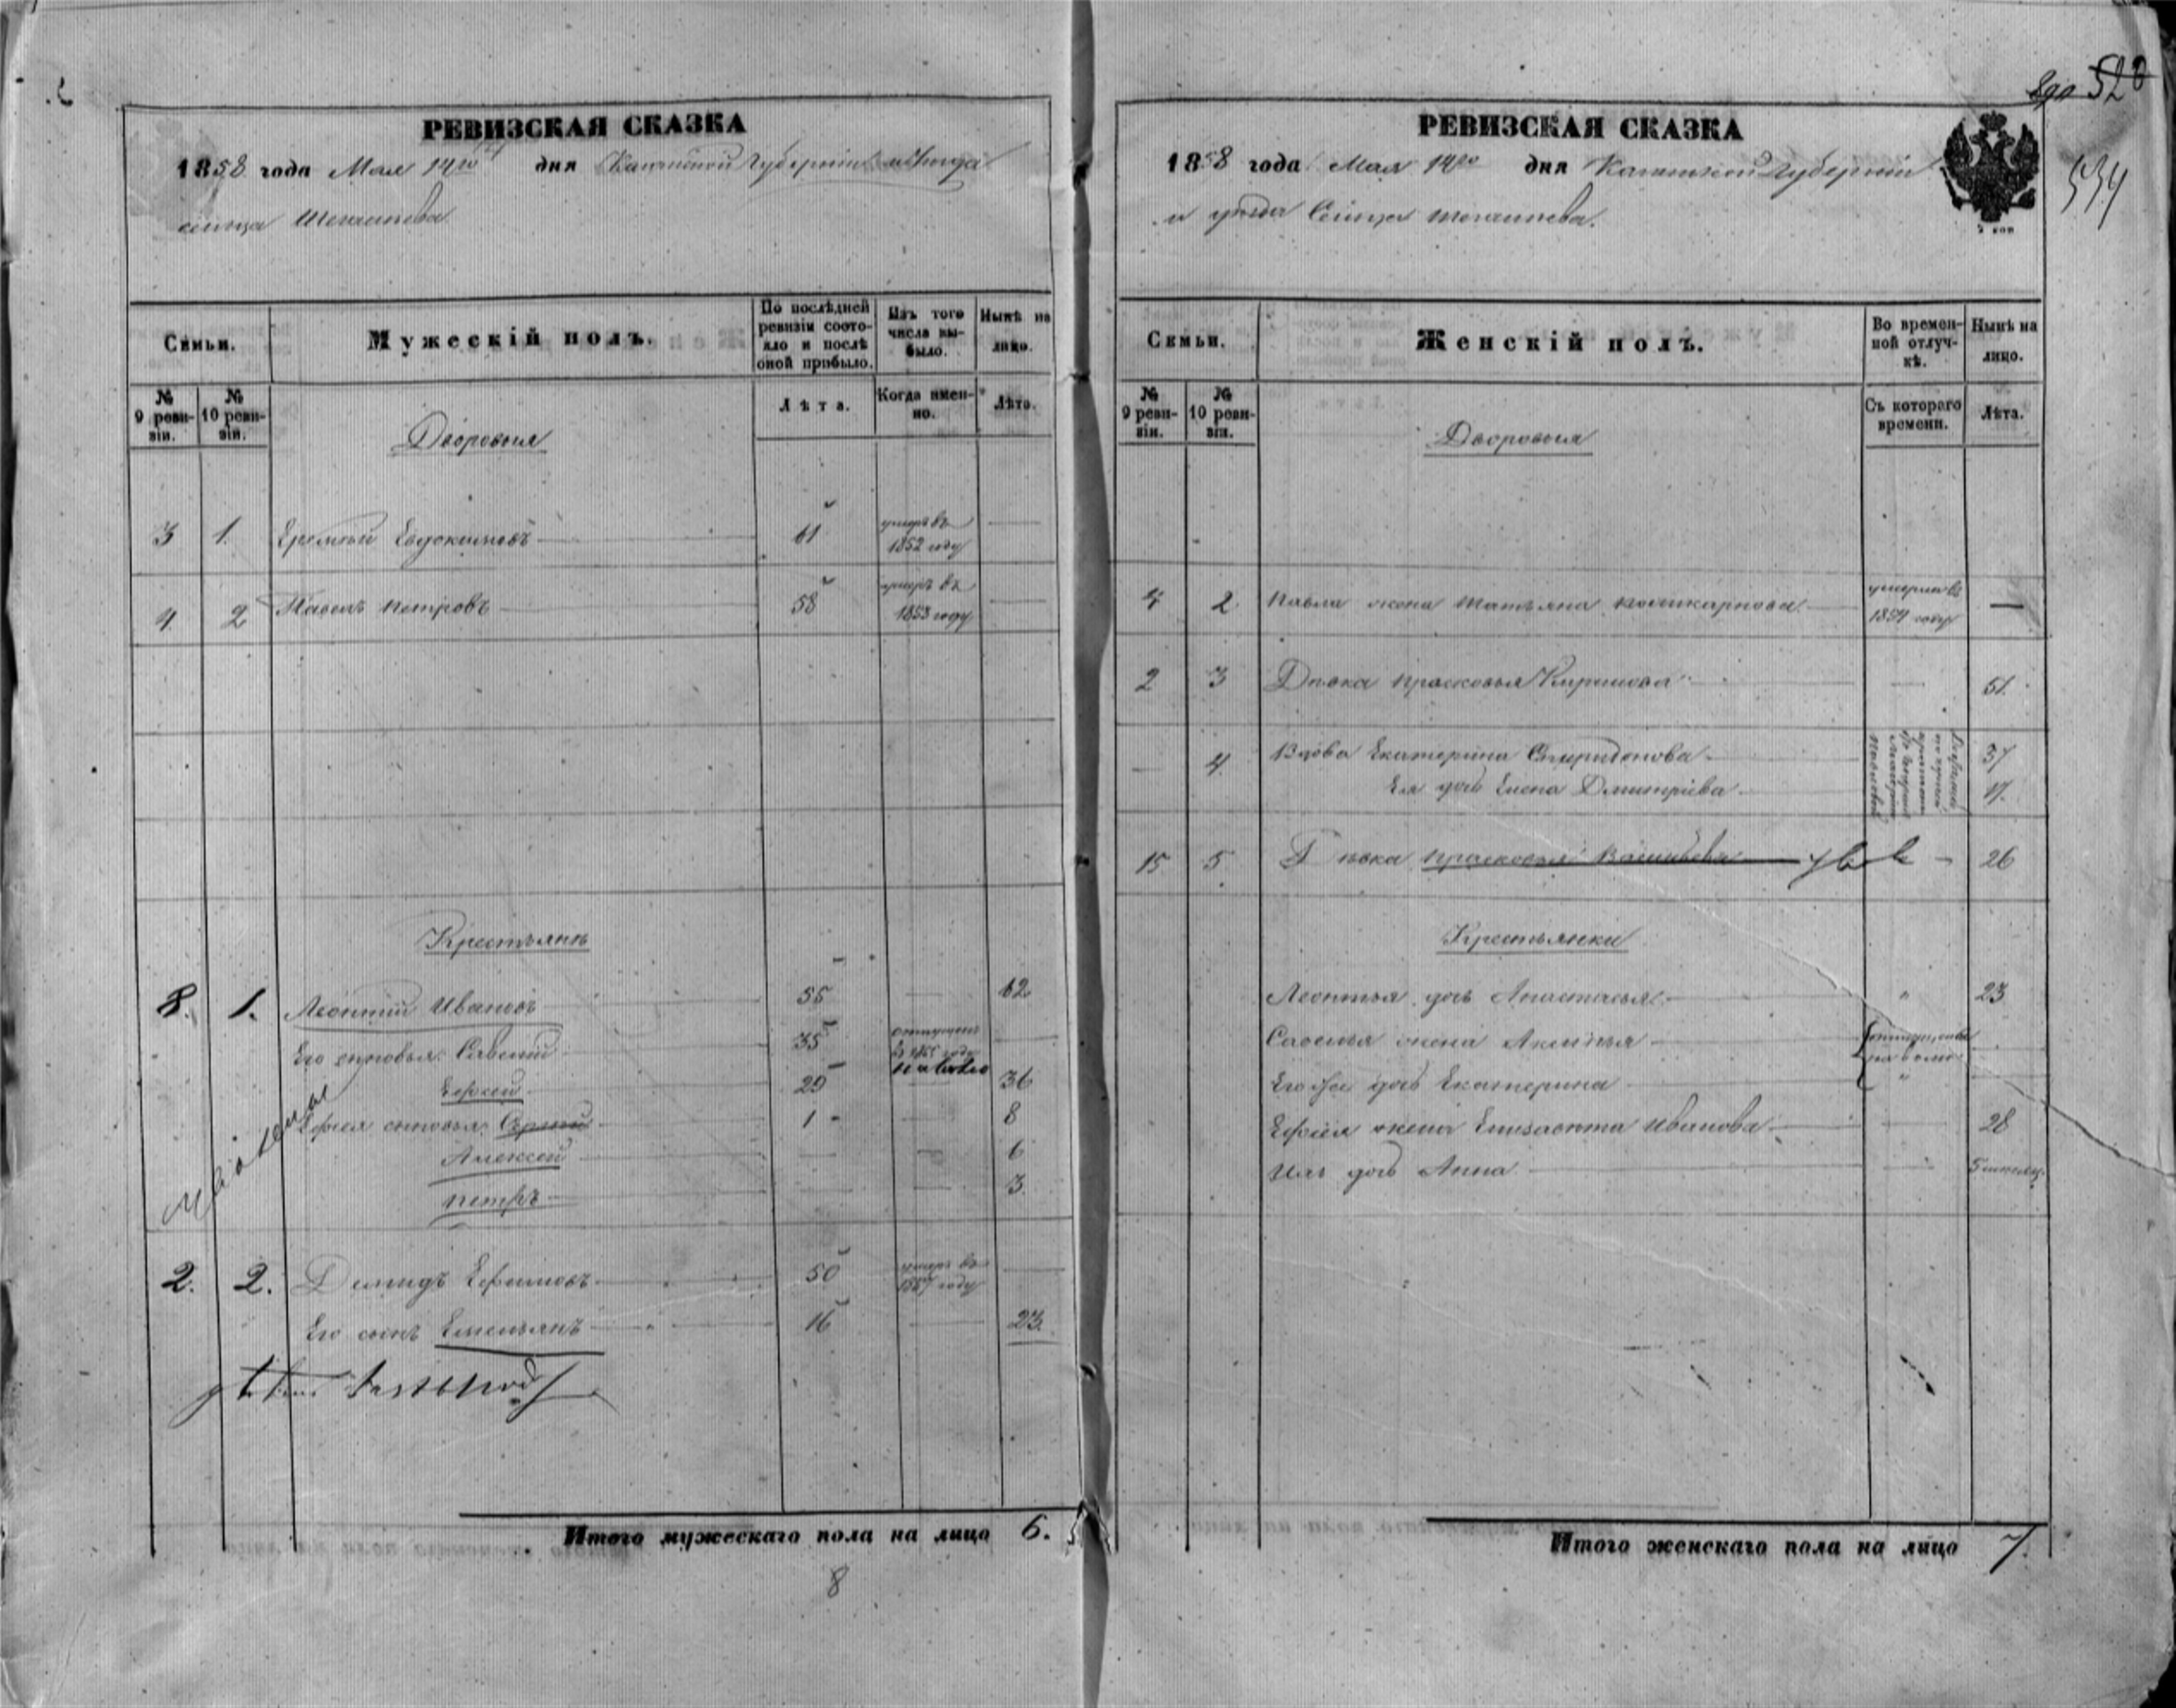 520
534
РЕВИЗСКАЯ СКАЗКА
1858 года Мая 14го дня Губерніи
сельца
Семьи.
Мужескій полъ.
По послѣдней ревизіи состояло и послѣ оной прибыло.
Изъ того числа выбыло.
Нынѣ на лицо.
№ 9 ревизіи.
№ 10 ревизіи.
Лѣта.
Когда именно.
Лѣта.
Дворовыя
3 1. Еремѣй Евдокимовъ 61 умеръ въ 1852 году
4 2 Павелъ Петровъ 58 умеръ въ 1853 году
Крестьянъ
8. 1. Леонтій Ивановъ 55 62
Его сыновья: Савелій 35 отпущенъ на волю
Ефсей 29 36
Ефсея сыновья: Сергей 1 8
Алексей 6
Петръ 3.
2. 2. Демидъ Ефимовъ 50 умеръ въ 1857 году
Его сынъ Емельянъ 16 23.
Итого мужескаго пола на лицо 6.
8
РЕВИЗСКАЯ СКАЗКА
1858 года Мая 14го дня Губерніи
и уѣзда Сельца
2 коп
Семьи.
Женскій полъ.
Во временной отлучкѣ.
Нынѣ на лицо.
№ 9 ревизіи.
№ 10 ревизіи.
Съ котораго времени.
Лѣта.
Дворовыя
4 2 Павла жена Татьяна Поликарпова умерла въ 1854 году
2 3 Дѣвка Прасковья Кирилова 51.
4. Вдова Екатерина Спиридонова 37
Ея дочь Елена Дмитріева 17.
15 5 Дѣвка Прасковья Васильева 26
Крестьянки
Леонтья дочь Анастасья 23
Савелья жена Акулина отпущены на волю
Его же дочь Екатерина "
Ефсея жена Елизавета Иванова 28
Ихъ дочь Анна 5 месяц.
Итого женскаго пола на лицо 7.